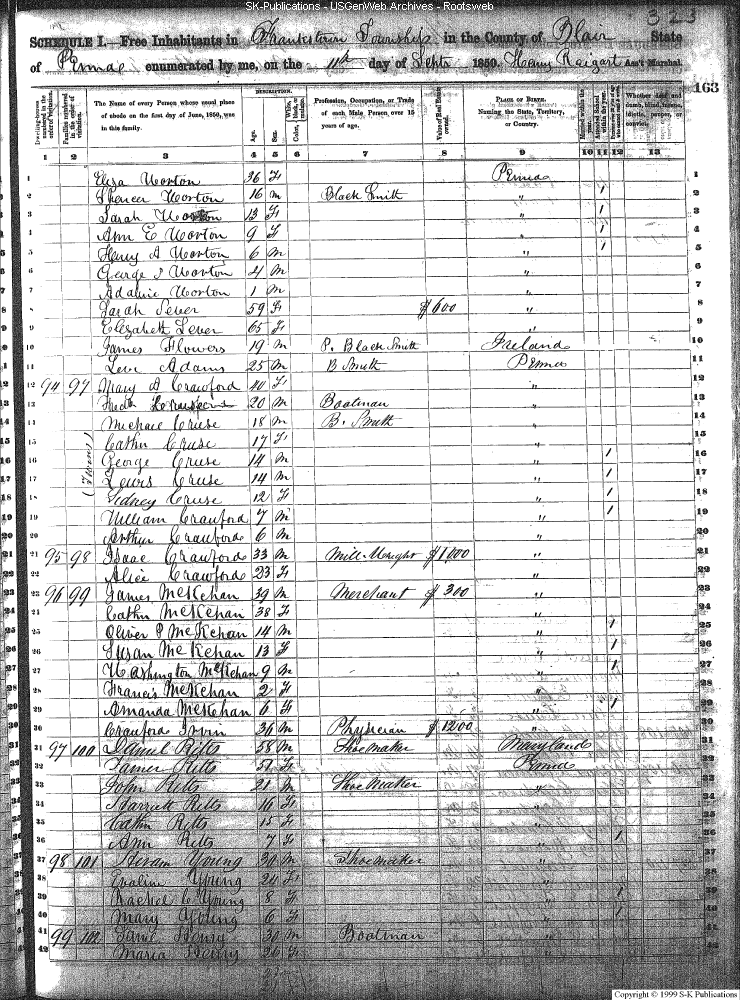 SK-Publications - USGenWeb Archives - Rootsweb
323
SCHEDULE I.—Free Inhabitants in Frankstown Township in the County of Blair State
of Penna enumerated by me, on the 11th day of Septr 1850. Henry Raigart Ass't Marshal.
163
Dwelling-houses numbered in the order of visitation.
Families numbered in the order of visitation.
The Name of every Person whose usual place of abode on the first day of June, 1850, was in this family.
DESCRIPTION.
Age.
Sex.
Color, White, black, or mulatto.
Profession, Occupation, or Trade of each Male Person over 15 years of age.
Value of Real Estate owned.
PLACE OF BIRTH. Naming the State, Territory, or Country.
Married within the year.
Attended School within the year.
Whether deaf and dumb, blind, insane, idiotic, pauper, or convict.
1 2 3 4 5 6 7 8 9 10 11 12 13
1 Eliza Norton 36 F Penna 1
2 Spencer Norton 16 M Black Smith " 1 2
3 Sarah Norton 13 F " 1 3
4 Ann E Norton 9 F " 1 4
5 Henry A Norton 6 M " 1 5
6 George Norton 4 M " 6
7 Norton 1 M " 7
8 Sarah 59 F $600 " 8
9 Elizabeth Lever 65 F " 9
10 James Flowers 19 M P. Black Smith Ireland 10
11 Levi Adams 25 M B Smith Penna 11
12 94 97 Mary A Crawford 40 F " 12
13 20 M Boatman " 13
14 Michael Cruse 18 M B. Smith " 14
15 Cathn Cruse 17 F " 15
16 (Twins) George Cruse 14 M " 1 16
17 Lewis Cruse 14 M " 1 17
18 Sidney Cruse 12 F " 1 18
19 William Crawford 7 M " 1 19
20 Arthur Crawford 6 M " 20
21 95 98 Isaac Crawford 33 M Mill-Wright $1,000 " 21
22 Alice Crawford 23 F " 22
23 96 99 James McKehan 39 M Merchant $300 " 23
24 Cathn McKehan 38 F " 24
25 Oliver P McKehan 14 M " 1 25
26 Susan McKehan 13 F " 1 26
27 Washington McKehan 9 M " 1 27
28 Francis McKehan 2 F " 28
29 Amanda McKehan 6 F " 1 29
30 Crawford Irvin 36 M Physician $1200 " 30
31 97 100 Daniel Ritts 58 M Shoe maker Maryland 31
32 Ritts 57 F Penna 32
33 John Ritts 21 M Shoe Maker " 33
34 Harriett Ritts 16 F " 34
35 Cathn Ritts 15 F " 35
36 Ann Ritts 7 F " 1 36
37 98 101 Hiram Young 30 M Shoemaker " 37
38 Evaline Young 24 F " 38
39 Rachel C Young 8 F " 1 39
40 Mary Young 6 F " 1 40
41 99 102 Henry 30 M Boatman " 41
42 Maria Henry 26 F " 42
Copyright © 1999 S-K Publications